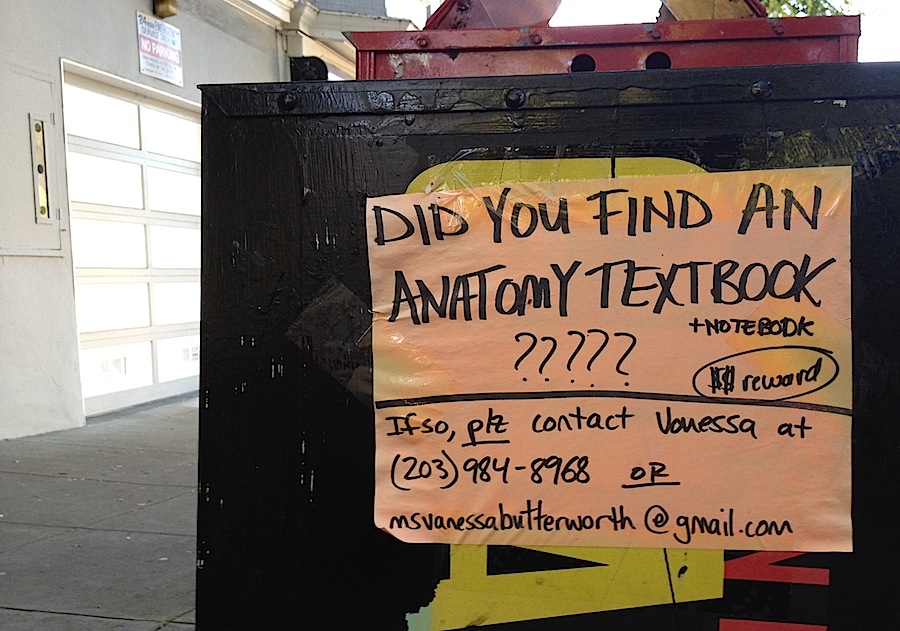 NO PARKING
DID YOU FIND AN
ANATOMY TEXTBOOK
+NOTEBOOK
?????
$$$ reward
If so, plz contact Vanessa at
(203) 984-8968 OR
msvanessabutterworth@gmail.com